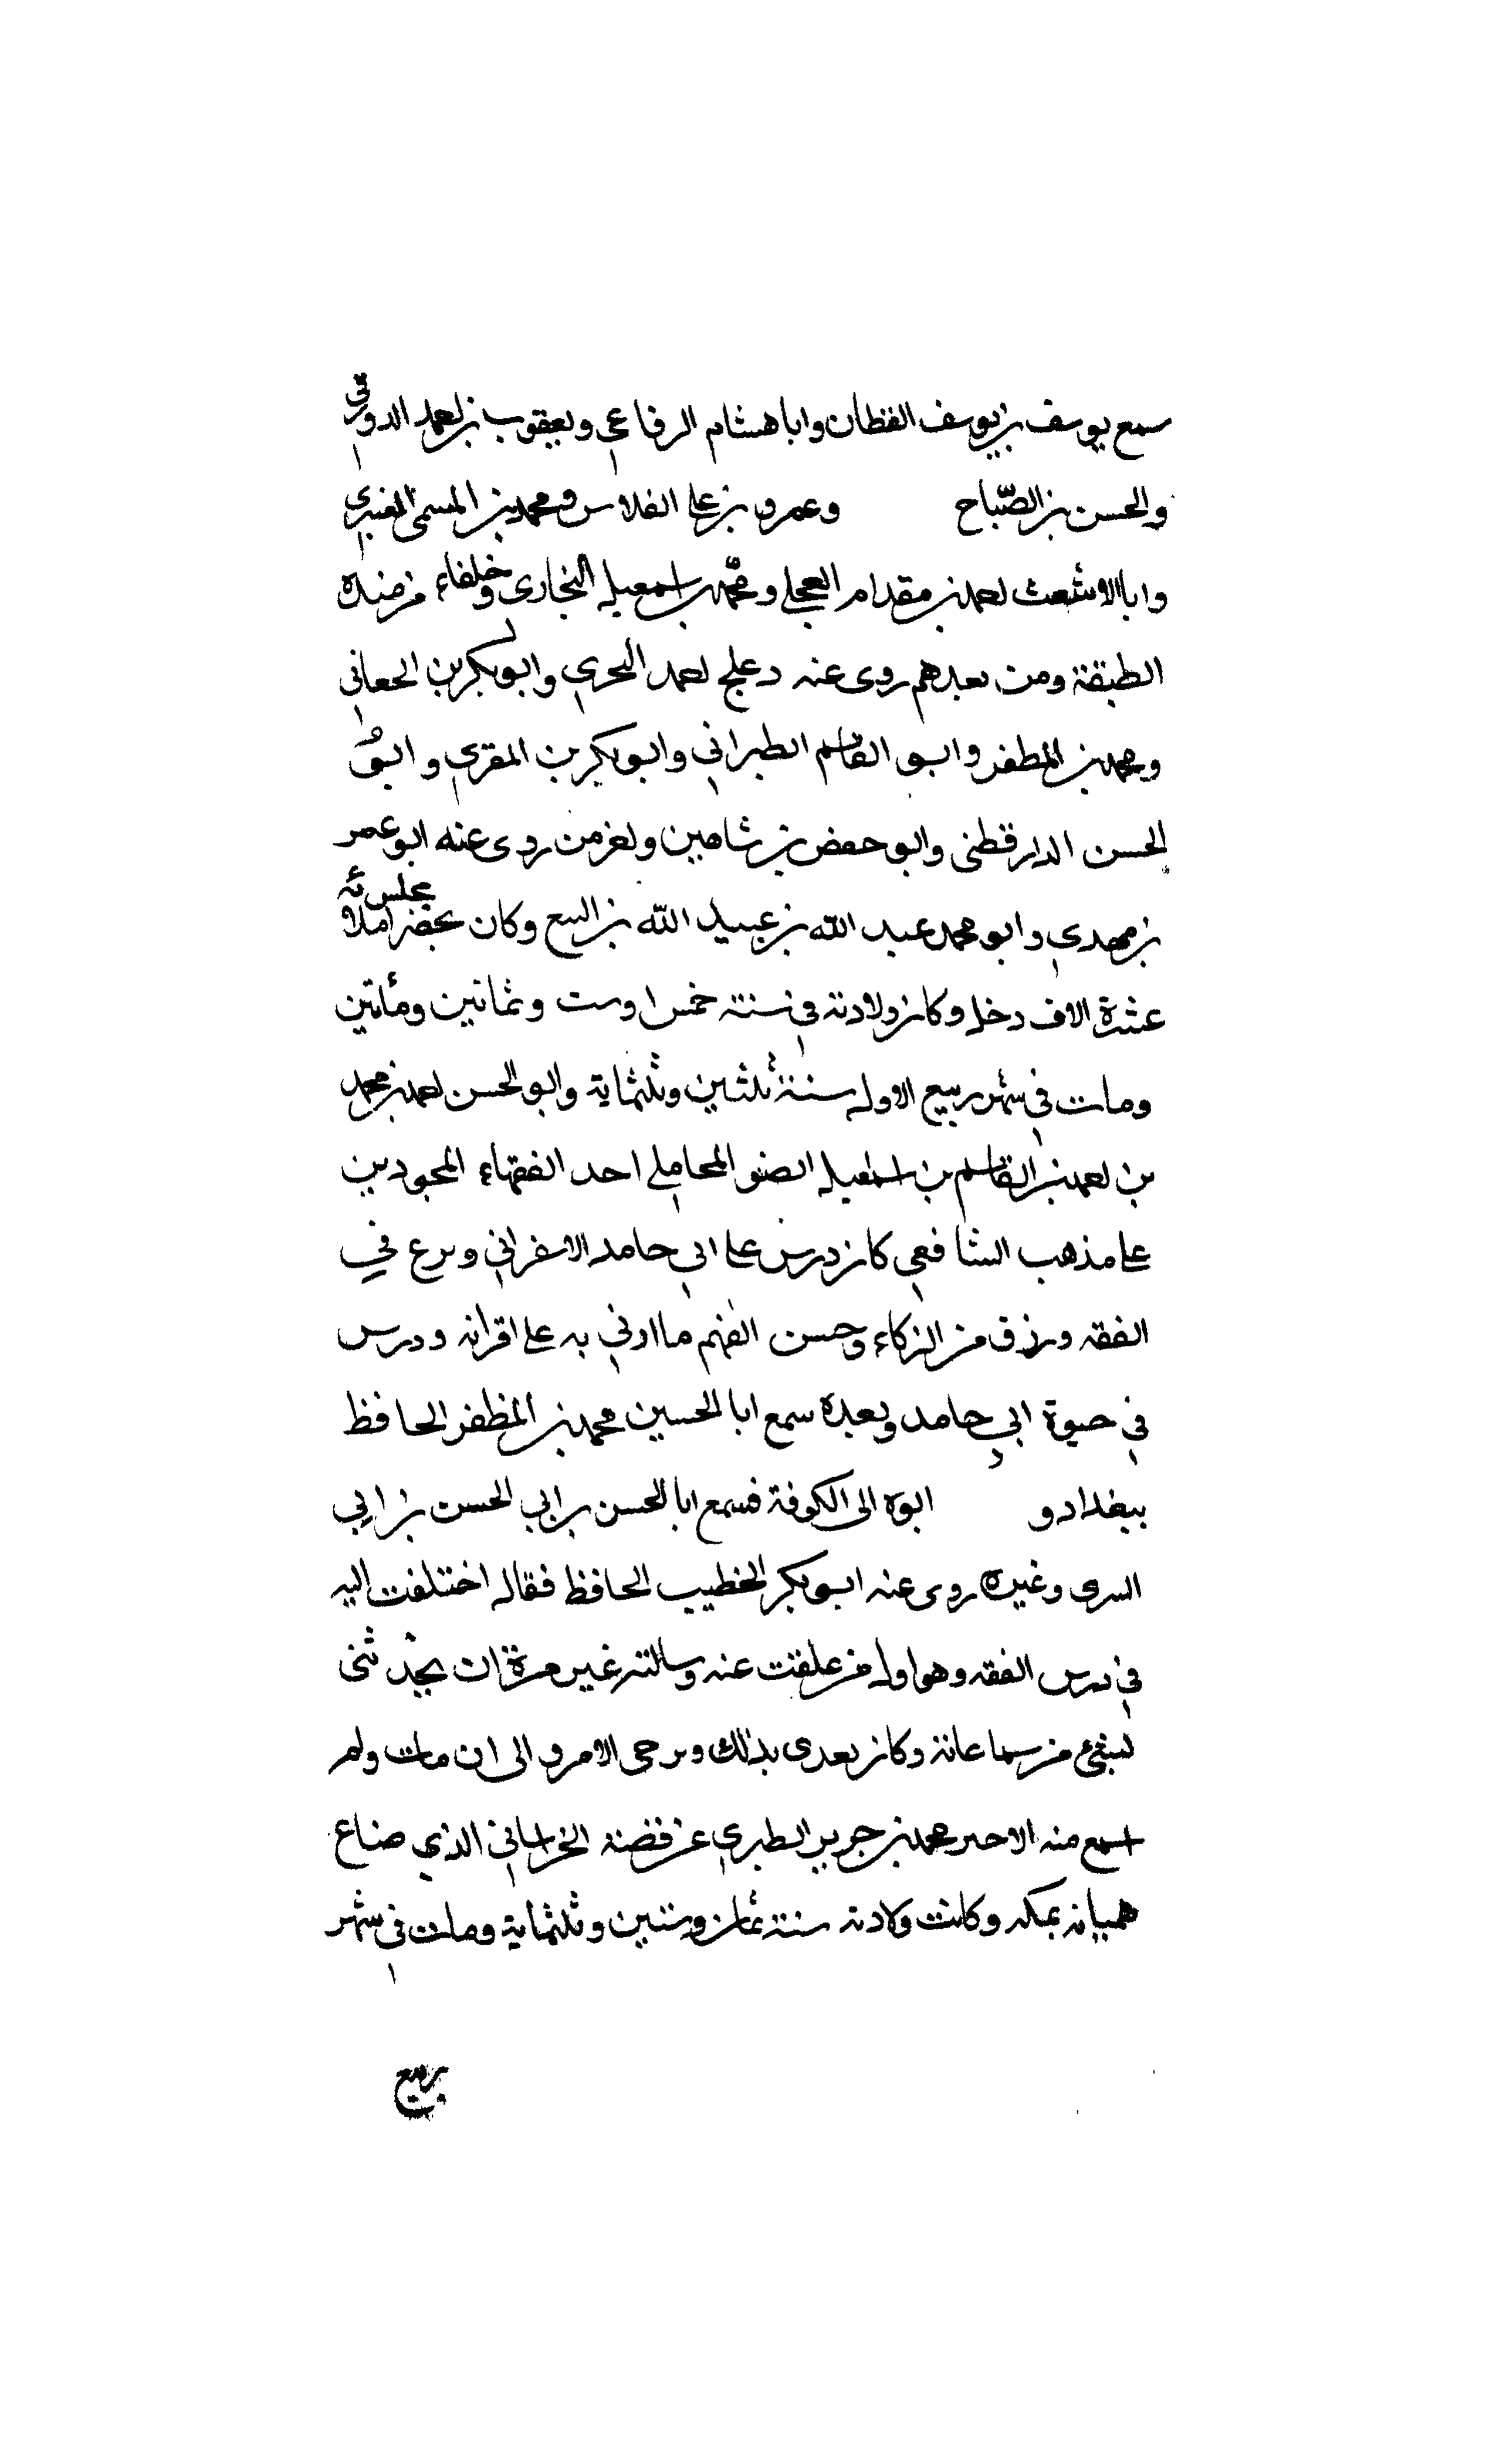 سمع يوسف بن يوسف القطان وابا هشام الرفاعي ويعقوب بن احمد الدورقي
والحسن بن الصّباح وعمرو بن علي الفلاس ومحمد بن المسمى العنبري
وابا الاشعث احمد بن مقدام العجلي ومحمّد بن اسمعيل البخارى وخلفاء من هذه
الطبقة ومن بعدهم روى عنه دعلج احمد البحري وابو بكر بن الجعاني
ومحمد بن المظفر وابو القاسم الطبراني وابو بكر بن المقري وابو
الحسن الدارقطنى وابو حفص بن شاهين ولخر من روى عنه ابو عمر
بن مهدي وابو محمد عبد الله بن عبيد الله بن البيع وكان يحضر املائه مجلس
عشرة الاف دخل وكان ولادته في سنته خمس او ست وثمانين ومأتين
ومات في شهر ربيع الاول سنة ثلثين وثلثماية وابو الحسن احمد بن محمد
بن احمد بن القاسم بن اسمعيل الضبو المحاملي احد الفقهاء المجودين
على مذهب الشافعي كان درس على ابي حامد الاسفراني وبرع في
الفقه ورزق من الزكاء وحسن الفهم ما اوني به على اقرانه ودرس
في حيوة ابي حامد وبعده سمع ابا الحسين محمد بن المظفر الحافظ
ببغداد و ابوه الى الكوفة فسمع ابا الحسن بن ابي الحسن بن ابي
السرى وغيره روى عنه ابو بكر الخطيب الحافظ فقال اختلفت اليه
في درس الفقه وهو اول من علقت عنه وسالته غير مرة ان يحدثنى
لشئ من سماعاته وكان يعدى بذلك ويرجى الامر و الى ان مات ولم
اسمع منه الا خبر محمد بن جرير الطبري عن قصة الخراساني الذي ضاع
هميانه بمكه وكانت ولادته سنة ثمان وستين وثلثماية ومات في شهر
ربيع